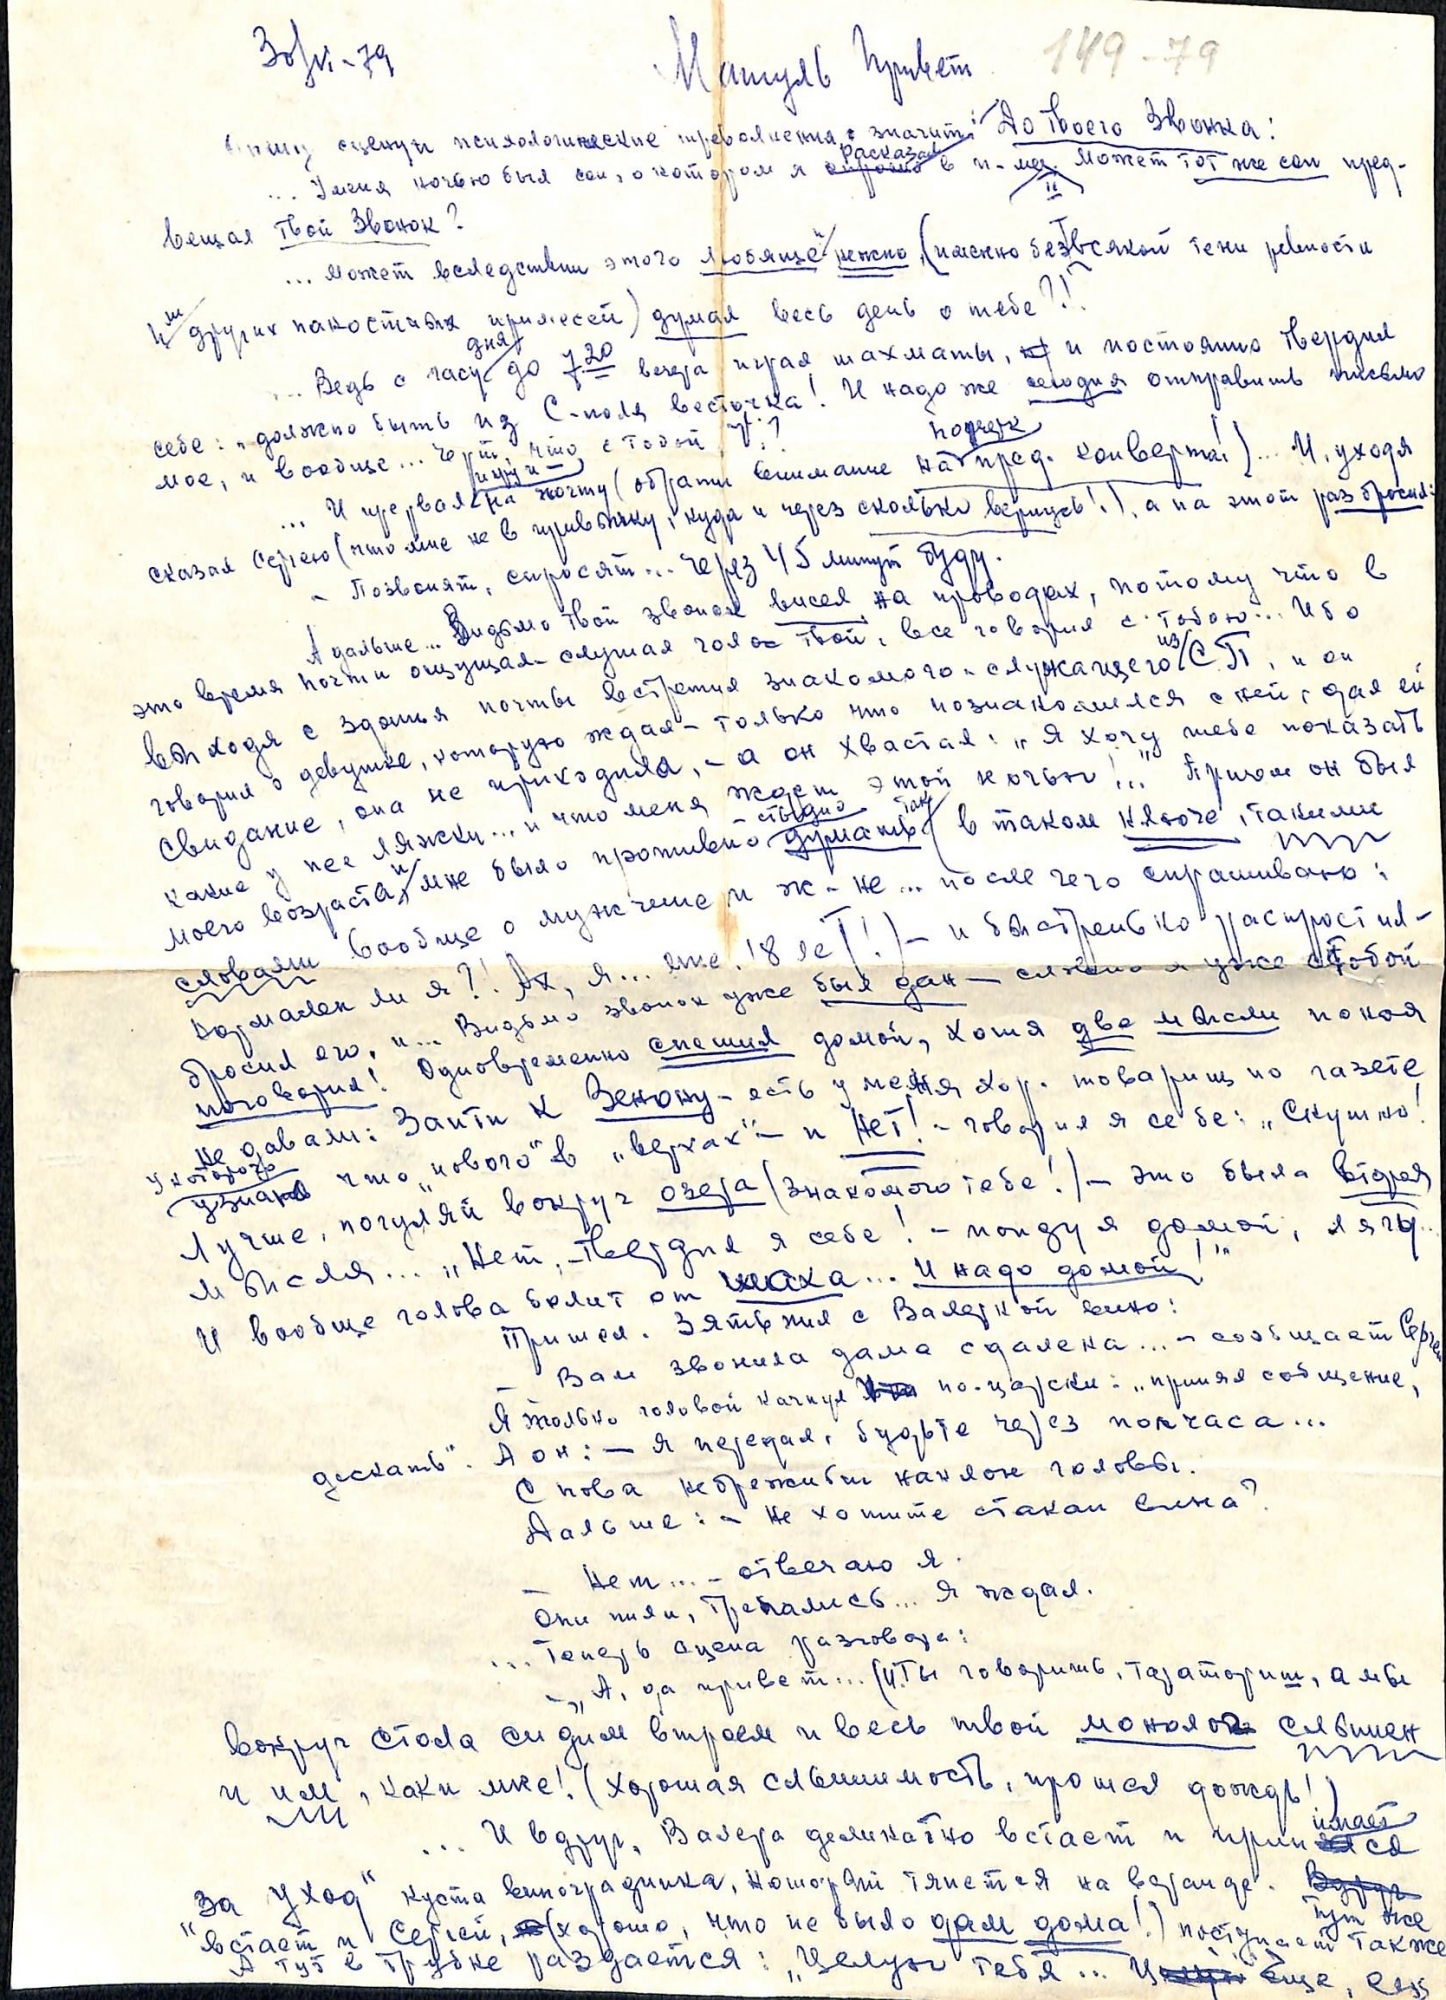 30/VI-79
Машуль привет
149-79
сцены психологические треволнения, значит: До твоего звонка:
... У меня ночью был сон, о котором я рассказал в п-ме. Может тот же сон пред-
вещал твой звонок?
... Может вследствии этого любяще и нежно (именно без всякой тени ревности
и др. других пакостных примесей) думал весь день о тебе?!
... Ведь с часу дня до 7.20 вечера играл шахматы, и постоянно твердил
себе: „должно быть из С-поля весточка! И надо же сегодня отправить письмо
мое, и вообще... Черт, что с тобой?!?
... И прервал, иду и – на почту (обрати внимание на пред. конверта! почерк)... И, уходя
сказал Сергею (что мне не в привычку, куда и через сколько вернусь!), а на этот раз бросил:
– Позвонят, спросят... через 45 минут буду.
А дальше... Видимо твой звонок висел на проводах, потому что в
это время почти ощущал-слушал голос твой, все говорил с тобою... Ибо
выходя с зданья почты встретил знакомого-служащего из СП, и он
говорил о девушке, которую ждал – только что познакомился с ней, дал ей
свидание, она не приходила, – а он хвастал: „Я хочу тебе показать
какие у нее ляжки... и что меня ждет этой ночью!..." Причем он был
моего возраста, и мне было противно – стыдно думать так в таком ключе, такими
словами вообще о мужчине и ж-не... после чего спрашиваю:
Нормален ли я?! Ах, я... мне 18 лет!) – и быстренько распростил-
бросил его, и... Видимо звонок уже был дан – словно я уже с тобой
поговорил! Одновременно спешил домой, хотя две мысли покоя
не давали: Зайти к Зенону – есть у меня хор. товарищ по газете
у которого узнаю что „нового" в „верхах" – и Нет! – говорил я себе: „Скушно!
Лучше, погуляй вокруг озера (знакомого тебе!) – это была вторая
мысля... „Нет, – твердил я себе! – пойду я домой, лягу...
И вообще голова болит от шаха... И надо домой!"
Пришел. Зять пил с Валеркой вино:
– Вам звонила дама сдалека... – сообщает Сергей
Я только головой качнул по-царски: „принял сообщение,
дескать". А он: – Я передал, будьте через полчаса...
Снова небрежный наклон головы.
Дальше: – Не хотите стакан вина?
– Нет... – отвечаю я.
Они пили, трепались... Я ждал.
... Теперь сцена разговора:
– „А, да привет... (И. Ты говоришь, тараториш, а мы
вокруг стола сидим втроем и весь твой монолог слышен
и им, как и мне! (хорошая слышимость, прошел дождь!)
... И вдруг, Валера деликатно встает и принимается
„за уход" куста виноградинка, который тянется на веранде. Тут же
встает и Сергей, (хорошо, что не было дам дома!) поступает также
А тут в трубке раздается: „Целую тебя... Еще, еля